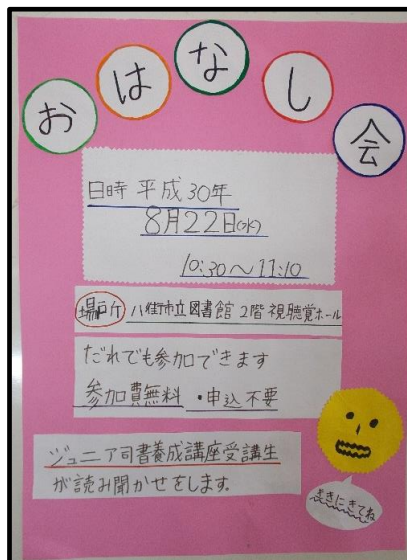 おはなし会
日時 平成30年
8月22日(水)
10:30～11:10
場所 八街市立図書館 2階 視聴覚ホール
だれでも参加できます
参加費無料 ・申込不要
ジュニア司書養成講座受講生
が読み聞かせをします。
ききにきてね